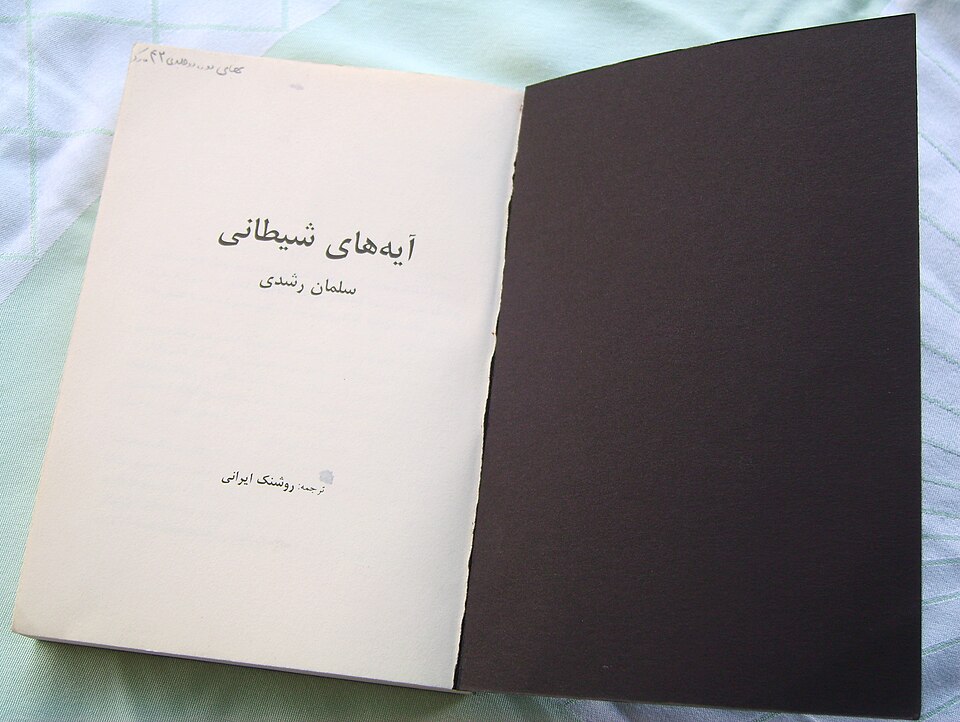 بهای ۴۲
آیه‌های شیطانی
سلمان رشدی
ترجمه: روشنک ایرانی